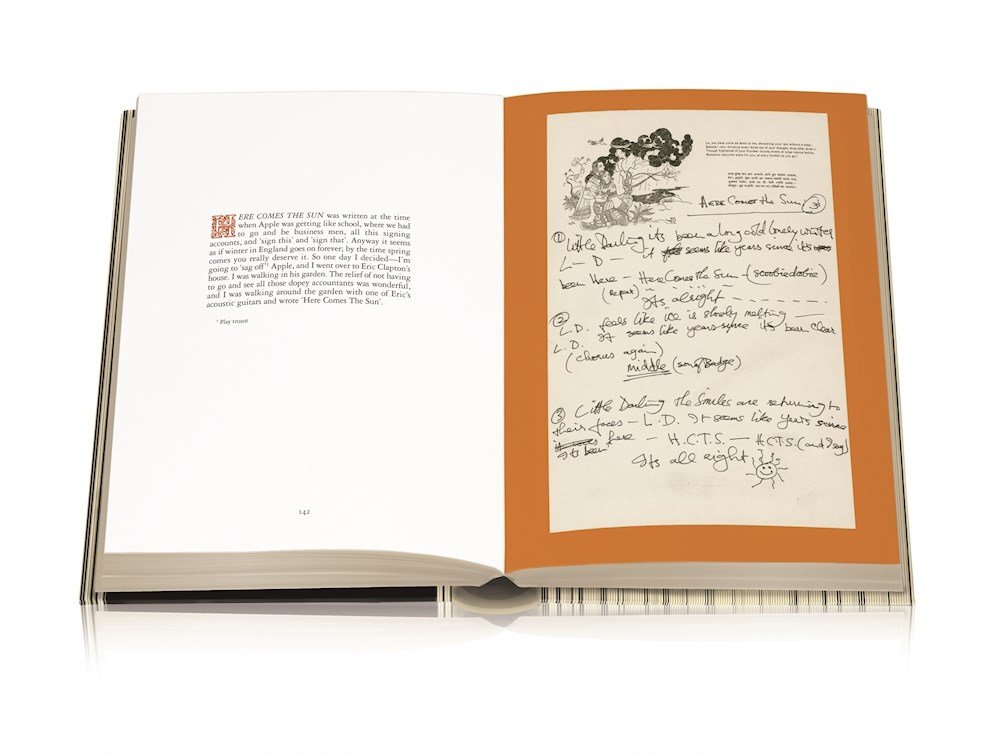 HERE COMES THE SUN was written at the time
when Apple was getting like school, where we had
to go and be business men, all this signing
accounts, and 'sign this' and 'sign that'. Anyway it seems
as if winter in England goes on forever; by the time spring
comes you really deserve it. So one day I decided—I'm
going to 'sag off'¹ Apple, and I went over to Eric Clapton's
house. I was walking in his garden. The relief of not having
to go and see all those dopey accountants was wonderful,
and I was walking around the garden with one of Eric's
acoustic guitars and wrote 'Here Comes The Sun'.
¹ Play truant
142
Here Comes the Sun 3
① Little Darling its been a long cold lonely winter
L - D - it seems like years since its
been Here - Here Comes the Sun - (scoobie doobie)
(repeat) Its alright - - - - - - - -
② L.D. feels like ice is slowly melting —
L.D. It seems like years since its been clear
(chorus again)
middle (son of Badge)
③ Little Darling the Smiles are returning to
their faces - L.D. It seems like years since
Its been here - H.C.T.S. - H.C.T.S. (and I say)
Its all right